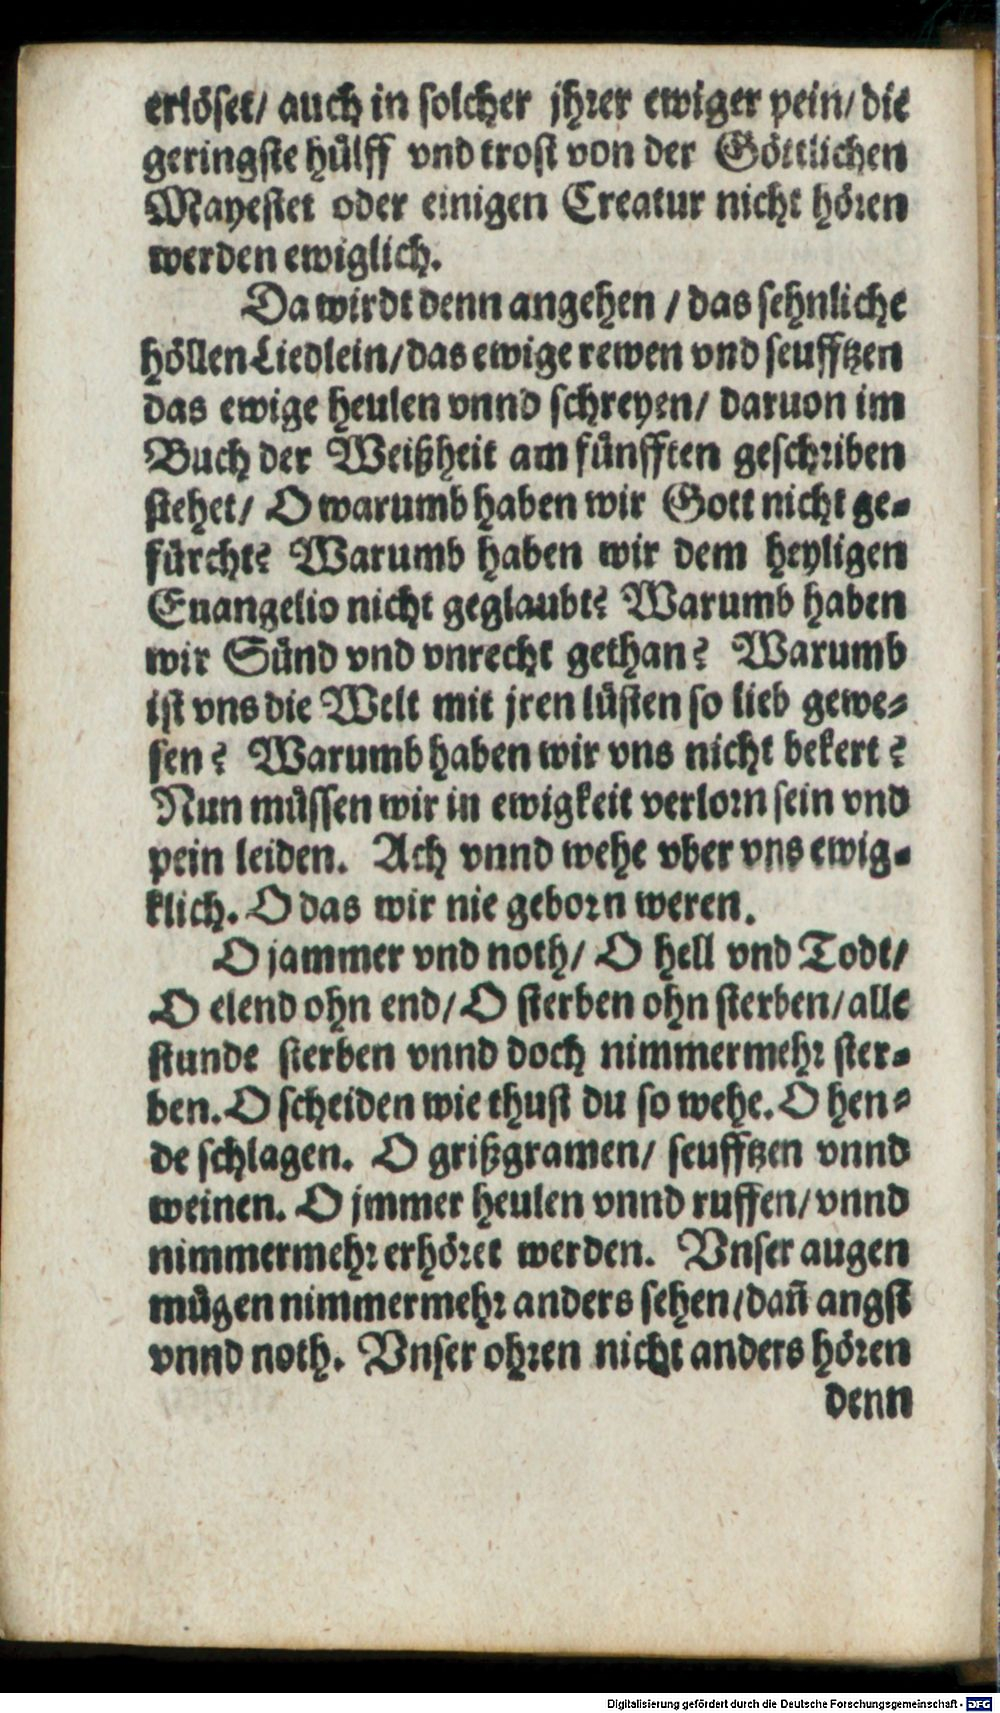 erlöset/ auch in solcher jhrer ewiger pein/ die
geringste hülff vnd trost von der Göttlichen
Mayestet oder einigen Creatur nicht hören
werden ewiglich.
Da wirdt denn angehen / das sehnliche
höllen Liedlein/ das ewige rewen vnd seufftzen
das ewige heulen vnnd schreyen/ daruon im
Buch der Weißheit am fünfften geschriben
stehet/ O warumb haben wir Gott nicht ge-
fürcht? Warumb haben wir dem heyligen
Euangelio nicht geglaubt? Warumb haben
wir Sünd vnd vnrecht gethan? Warumb
ist vns die Welt mit jren lüsten so lieb gewe-
sen? Warumb haben wir vns nicht bekert?
Nun müssen wir in ewigkeit verlorn sein vnd
pein leiden. Ach vnnd wehe vber vns ewig-
klich. O das wir nie geborn weren.
O jammer vnd noth/ O hell vnd Todt/
O elend ohn end/ O sterben ohn sterben/ alle
stunde sterben vnnd doch nimmermehr ster-
ben. O scheiden wie thust du so wehe. O hen-
de schlagen. O grißgramen/ seufftzen vnnd
weinen. O jmmer heulen vnnd ruffen/ vnnd
nimmermehr erhöret werden. Vnser augen
mügen nimmermehr anders sehen/ dañ angst
vnnd noth. Vnser ohren nicht anders hören
denn
Digitalisierung gefördert durch die Deutsche Forschungsgemeinschaft - DFG